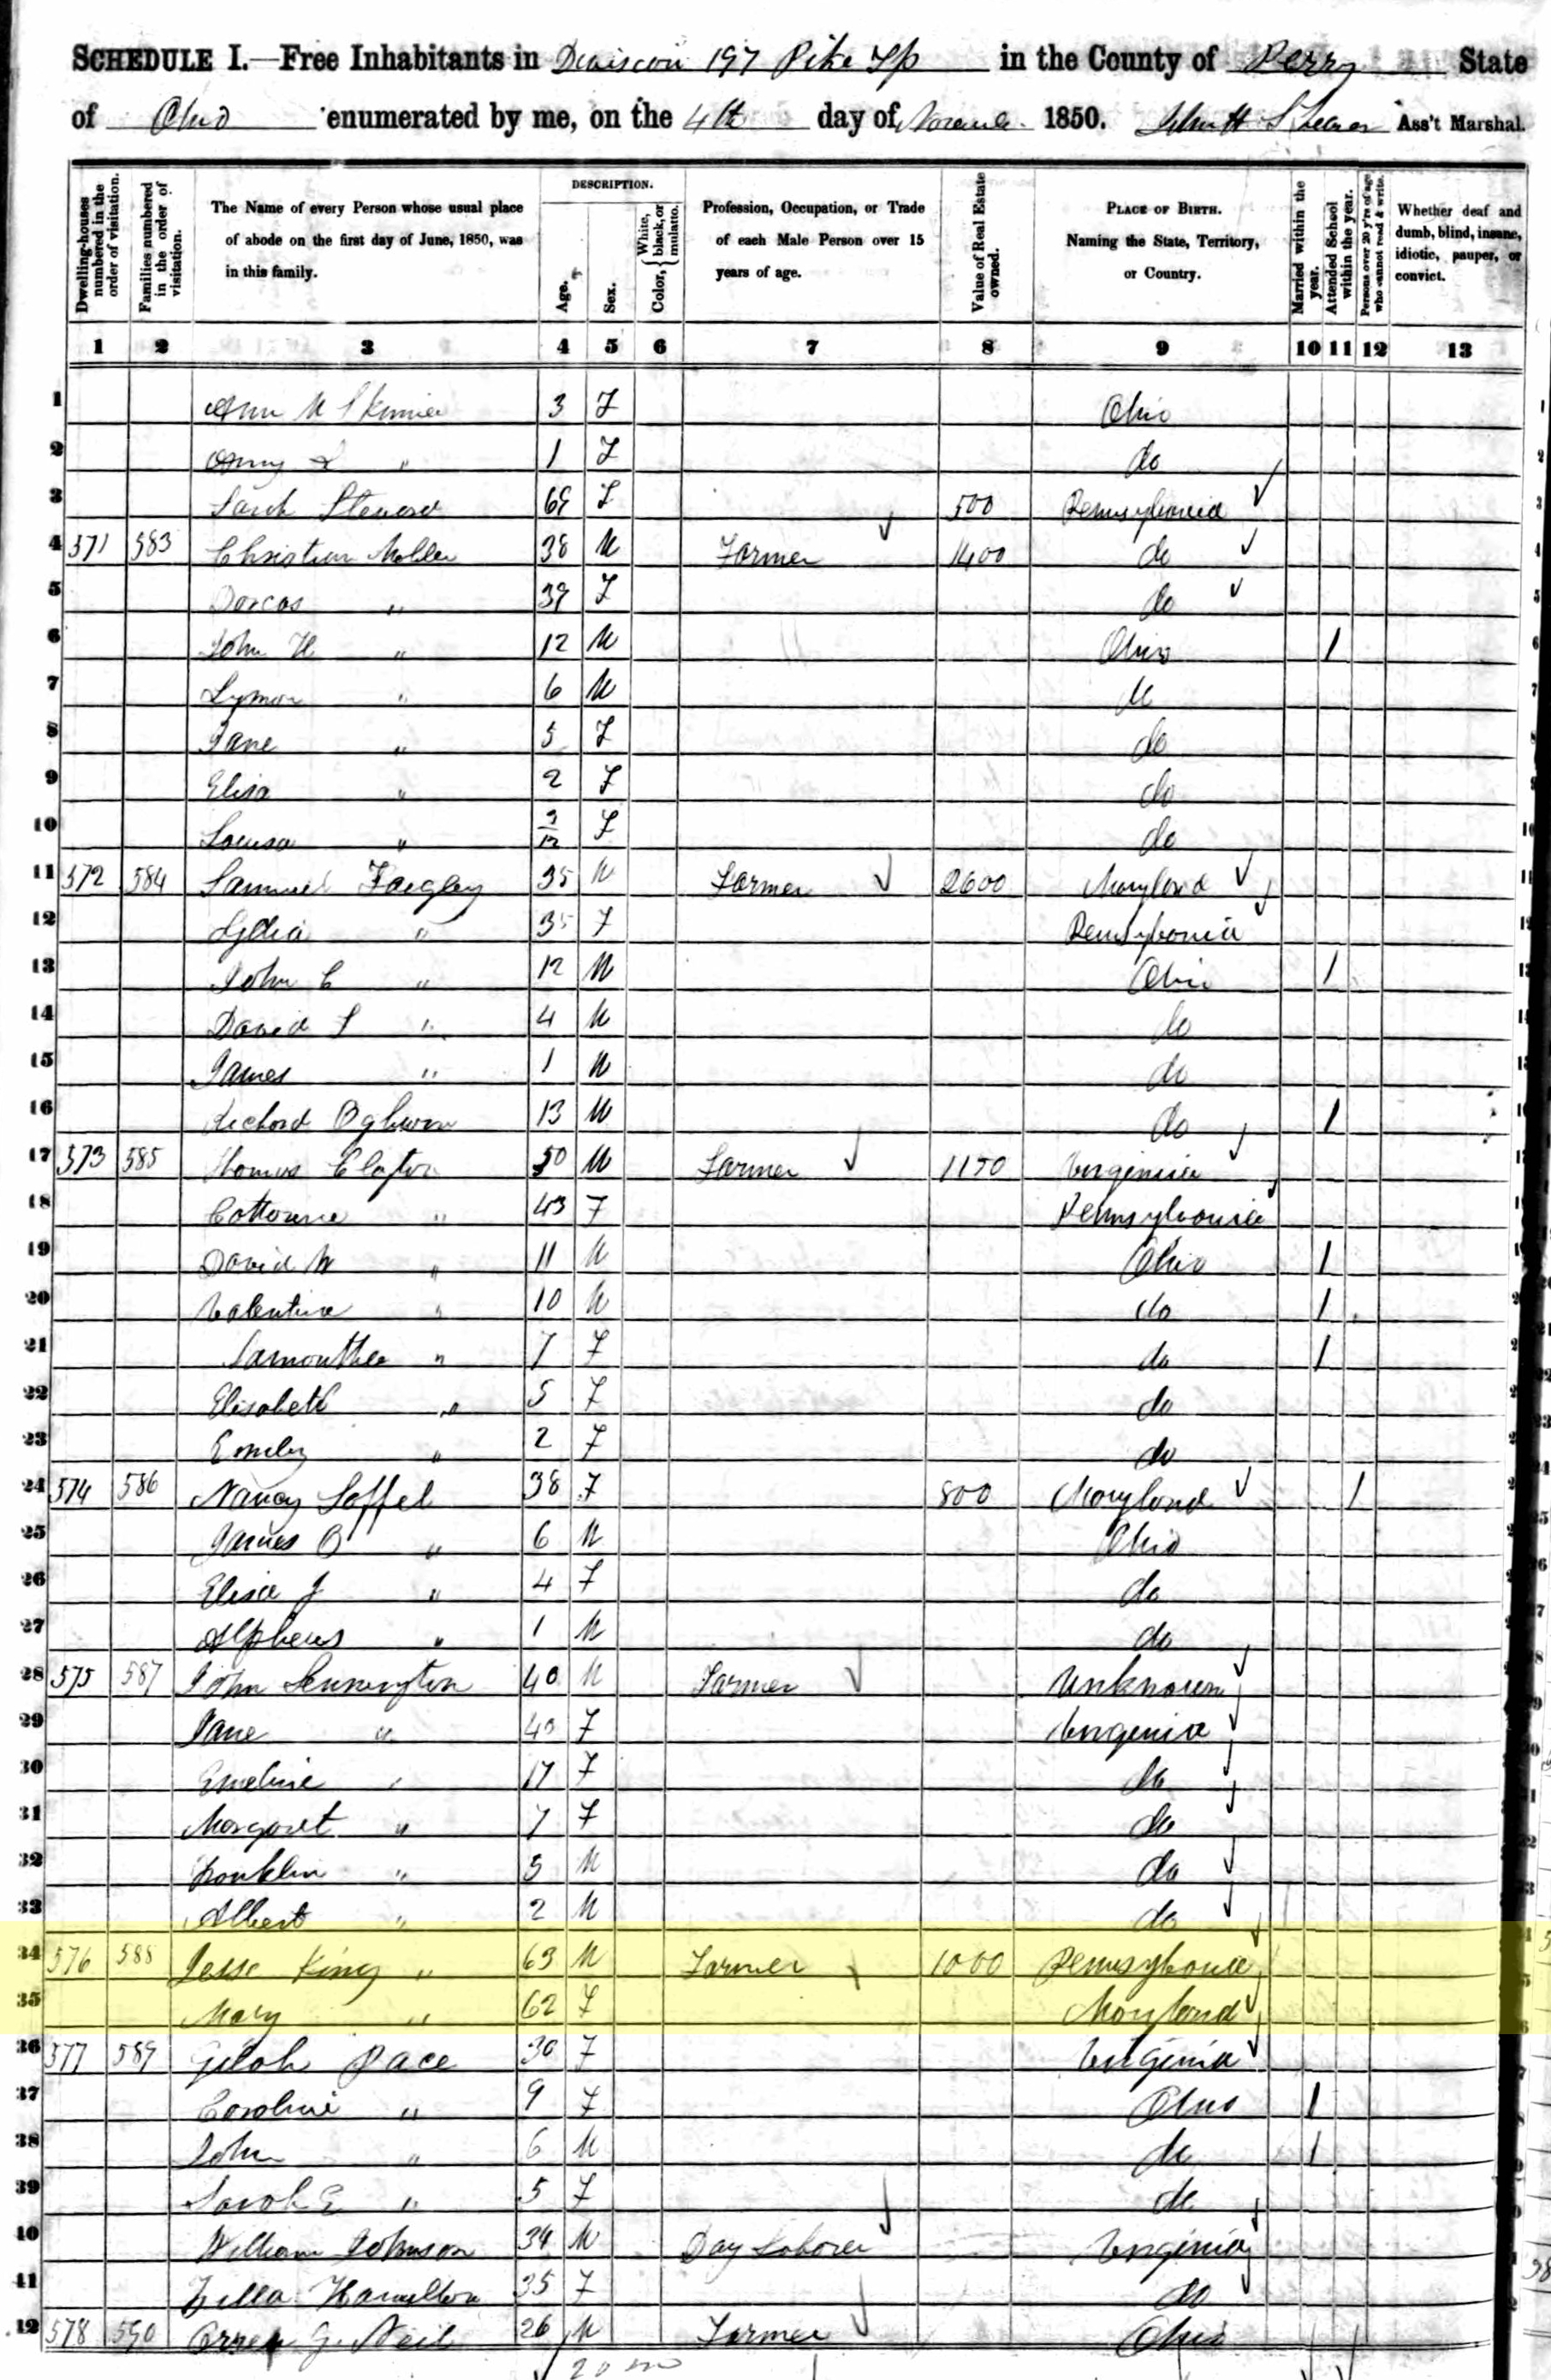 SCHEDULE I.—Free Inhabitants in Division 197 Pike Tp in the County of Perry State
of Ohio enumerated by me, on the 4th day of November 1850. Ass't Marshal.
Dwelling-houses numbered in the order of visitation.
Families numbered in the order of visitation.
The Name of every Person whose usual place of abode on the first day of June, 1850, was in this family.
DESCRIPTION.
Age.
Sex.
Color, { White, black, or mulatto.
Profession, Occupation, or Trade of each Male Person over 15 years of age.
Value of Real Estate owned.
PLACE OF BIRTH. Naming the State, Territory, or Country.
Married within the year.
Attended School within the year.
Persons over 20 y'rs of age who cannot read & write.
Whether deaf and dumb, blind, insane, idiotic, pauper, or convict.
1 2 3 4 5 6 7 8 9 10 11 12 13
1 Ann M Skinner 3 F Ohio
2 " 1 F do
3 Sarah 69 F 500 Pennsylvania
4 571 583 Christian 38 M Farmer 1400 do
5 Dorcas " 39 F do
6 John H " 12 M Ohio 1
7 Lyman " 6 M do
8 Jane " 5 F do
9 Elisa " 2 F do
10 Louisa " 3/12 F do
11 572 584 Samuel Faigley 35 M Farmer 2600 Maryland
12 Lydia " 35 F Pensylvania
13 John C " 12 M Ohio 1
14 David S " 4 M do
15 James " 1 M do
16 Richard 13 M do 1
17 573 585 Thomas Clayton 50 M Farmer 1150 Virginia
18 Catharine " 43 F Pennsylvania
19 David W " 11 M Ohio 1
20 Valentine " 10 M do 1
21 Samantha " 7 F do 1
22 Elisabeth " 5 F do
23 Emily " 2 F do
24 574 586 Nancy Loffel 38 F 800 Maryland 1
25 James O " 6 M Ohio
26 Elisa J " 4 F do
27 Alpheus " 1 M do
28 575 587 John Lennington 40 M Farmer Unknown
29 Jane " 40 F Virginia
30 Emeline " 17 F do
31 Margaret " 7 F do
32 Franklin " 5 M do
33 Albert " 2 M do
34 576 588 Jesse King " 63 M Farmer 1000 Pennsylvania
35 Mary " 62 F Maryland
36 577 589 Pace 30 F Virginia
37 Caroline " 9 F Ohio 1
38 John " 6 M do 1
39 Sarah E " 5 F do
40 William Johnson 34 M Day Laborer Virginia
41 Hamilton 35 F do
42 578 590 G. Neil 26 M Farmer Ohio